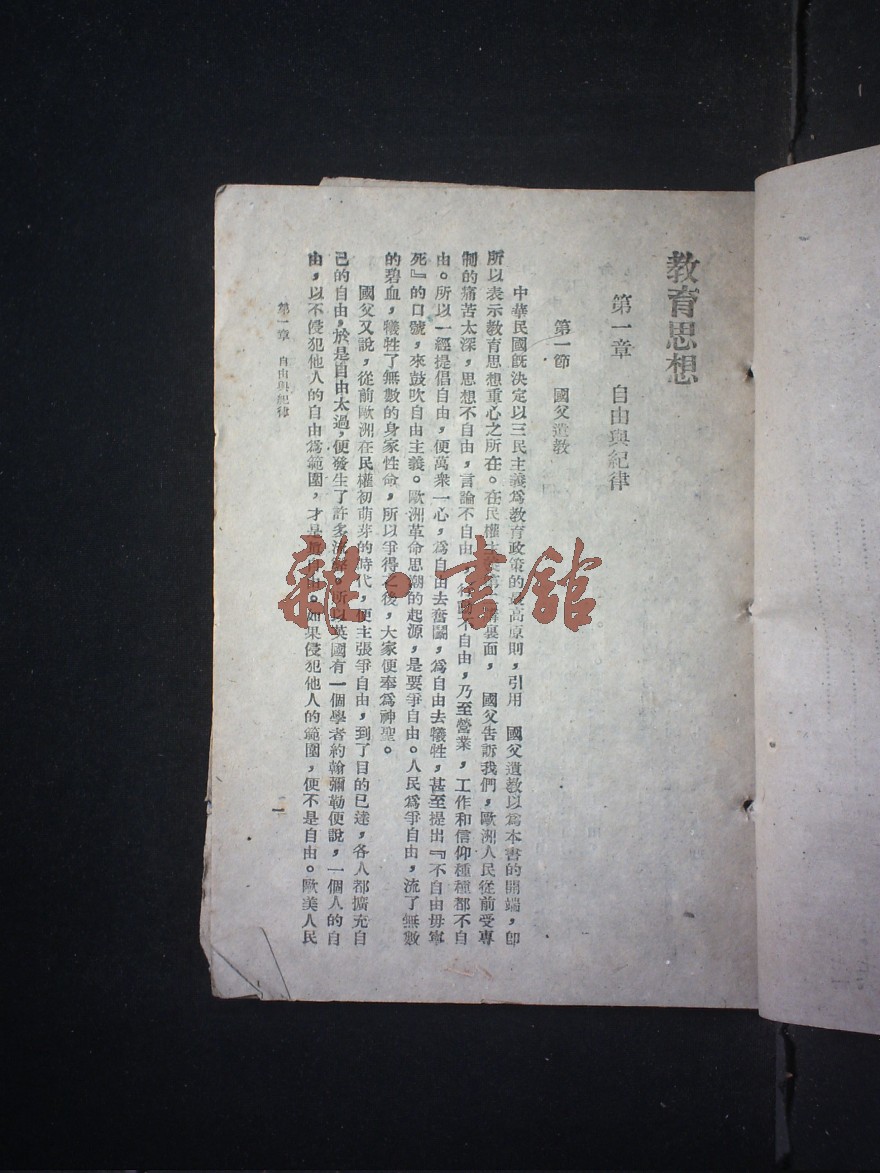 教育思想
第一章 自由與紀律
第一節 國父遺教
中華民國旣決定以三民主義爲教育政策的最高原則，引用 國父遺教以爲本書的開端，卽
所以表示教育思想重心之所在。在民權主義第二講裏面， 國父告訴我們，歐洲人民從前受專
制的痛苦太深，思想不自由，言論不自由，行動不自由，乃至營業，工作和信仰種種都不自
由。所以一經提倡自由，便萬衆一心，爲自由去奮鬭，爲自由去犧牲，甚至提出『不自由毋寧
死』的口號，來鼓吹自由主義。歐洲革命思潮的起源，是要爭自由。人民爲爭自由，流了無數
的碧血，犧牲了無數的身家性命，所以爭得之後，大家便奉爲神聖。
國父又說，從前歐洲在民權初萌芽的時代，便主張爭自由，到了目的已達，各人都擴充自
己的自由，於是自由太過，便發生了許多流弊。所以英國有一個學者約翰彌勒便說，一個人的自
由，以不侵犯他人的自由爲範圍，才是眞自由。如果侵犯他人的範圍，便不是自由。歐美人民
第一章 自由與紀律
一
雜·書館